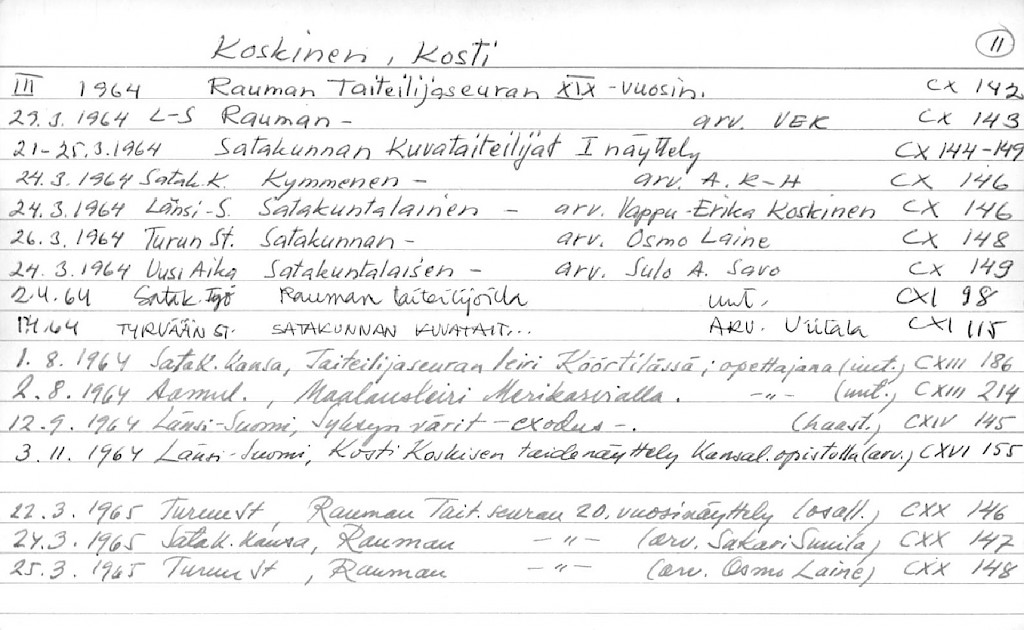 Koskinen, Kosti 11
III 1964 Rauman Taiteilijaseuran XIX-vuosin. CX 142
23.3.1964 L-S Rauman - arv. VEK CX 143
21-25.3.1964 Satakunnan Kuvataiteilijat I näyttely CX 144-149
24.3.1964 Satak.K. Kymmenen - arv. A.K-H CX 146
24.3.1964 Länsi-S. Satakuntalainen - arv. Vappu-Erika Koskinen CX 146
26.3.1964 Turun St. Satakunnan - arv. Osmo Laine CX 148
24.3.1964 Uusi Aika Satakuntalaisen - arv. Sulo A. Savo CX 149
2.4.64 Satak.Työ Rauman taiteilijoilla uut. CXI 98
TYRVÄÄN ST. SATAKUNNAN KUVATAIT... ARV. Viitala CXI 115
1.8.1964 Satak.Kansa, Taiteilijaseuran leiri Köörtilässä; opettajana (uut.) CXIII 186
2.8.1964 Aamul., Maalausleiri Merikarvialla. -"- (uut.) CXIII 214
12.9.1964 Länsi-Suomi, Syksyn värit - exodus -. (haast.) CXIV 145
3.11.1964 Länsi-Suomi, Kosti Koskisen taidenäyttely Kansal.opistolla (arv.) CXVI 155
22.3.1965 Turun St, Rauman Tait.seuran 20.vuosinäyttely (osall.) CXX 146
24.3.1965 Satak.Kansa, Rauman -"- (arv. Sakari Sunila) CXX 147
25.3.1965 Turun St, Rauman -"- (arv. Osmo Laine) CXX 148